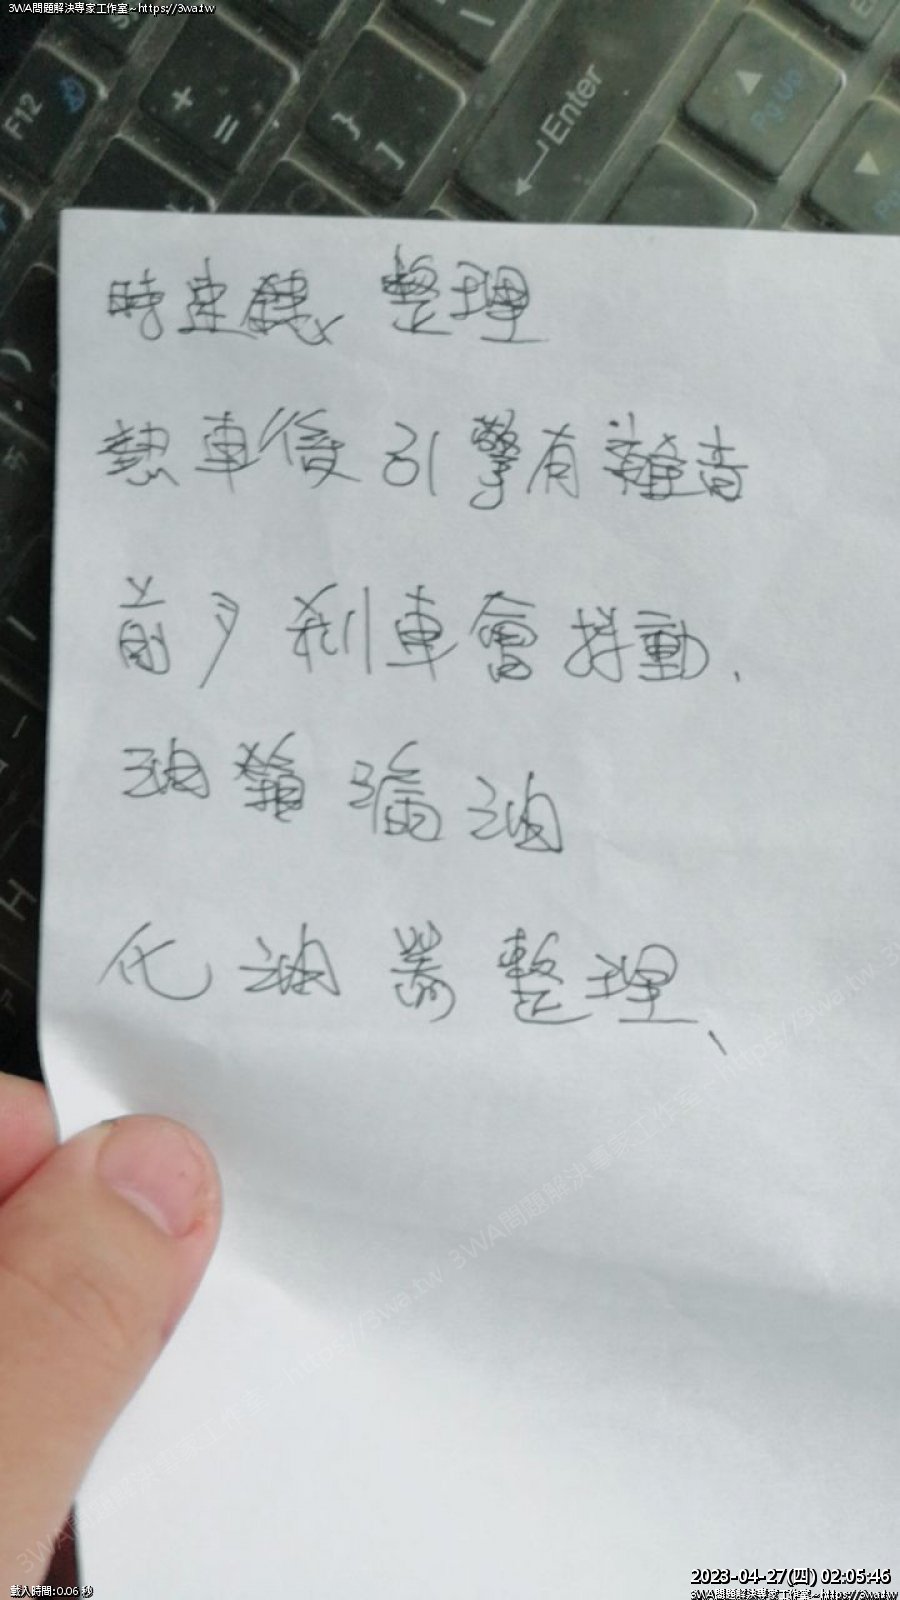 3WA問題解決專家工作室~https://3wa.tw
F12
+
=
}
]
Enter
PgUp
時速錶 整理
熱車後引擎有雜音
前 剎車會抖動、
油箱漏油
化油器整理、
3WA問題解決專家工作室~https://3wa.tw 3WA問題解決專家工作室~https://3wa.tw
載入時間:0.06 秒
2023-04-27(四) 02:05:46
3WA問題解決專家工作室~https://3wa.tw